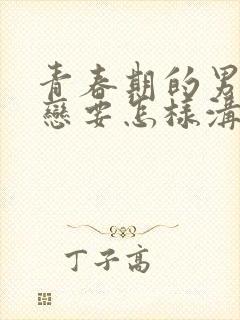 青春期的男
戀要怎樣溝
丁子高